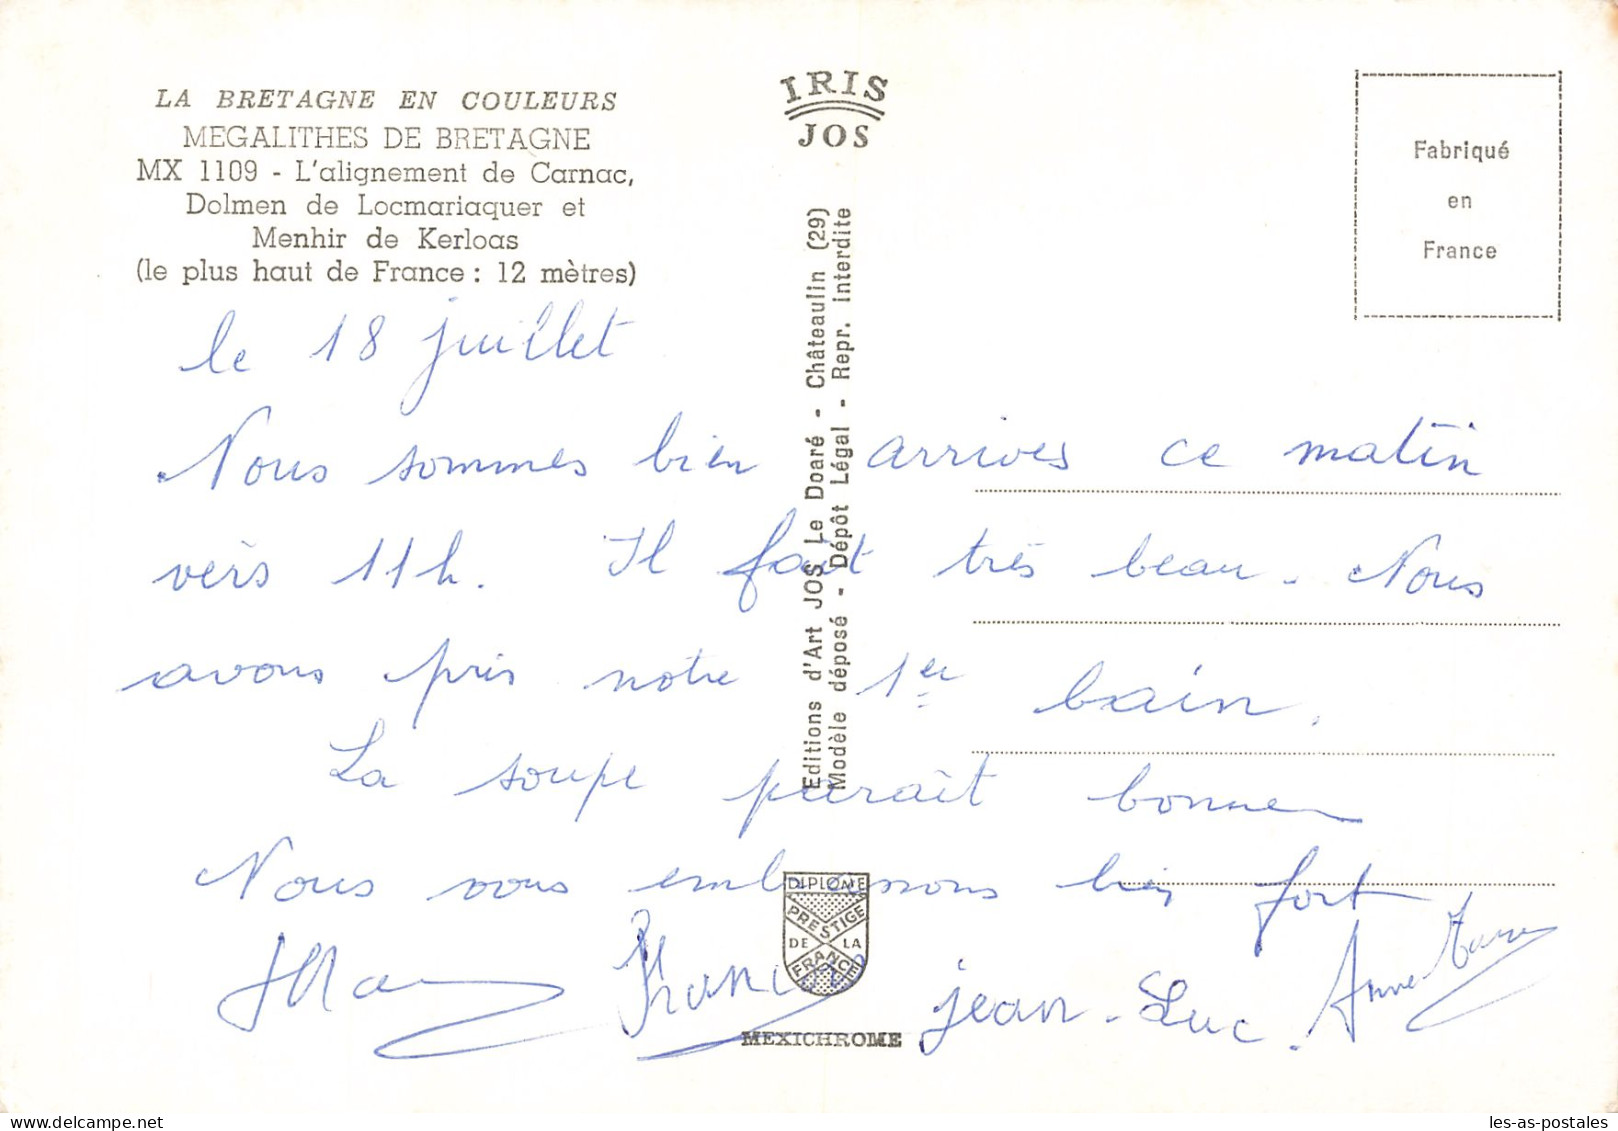 LA BRETAGNE EN COULEURS
MEGALITHES DE BRETAGNE
MX 1109 - L'alignement de Carnac,
Dolmen de Locmariaquer et
Menhir de Kerloas
(le plus haut de France : 12 mètres)
IRIS
JOS
Fabriqué
en
France
Editions d'Art JOS Le Doaré - Châteaulin (29)
Modèle déposé - Dépôt Légal - Repr. Interdite
le 18 juillet
Nous sommes bien arrivés ce matin
vers 11h. Il fait très beau. Nous
avons pris notre 1er bain.
La soupe paraît bonne
Nous vous embrassons bien fort
Jean-Luc. Anne
DIPLOME
PRESTIGE
DE LA
FRANCE
MEXICHROME
les-as-postales